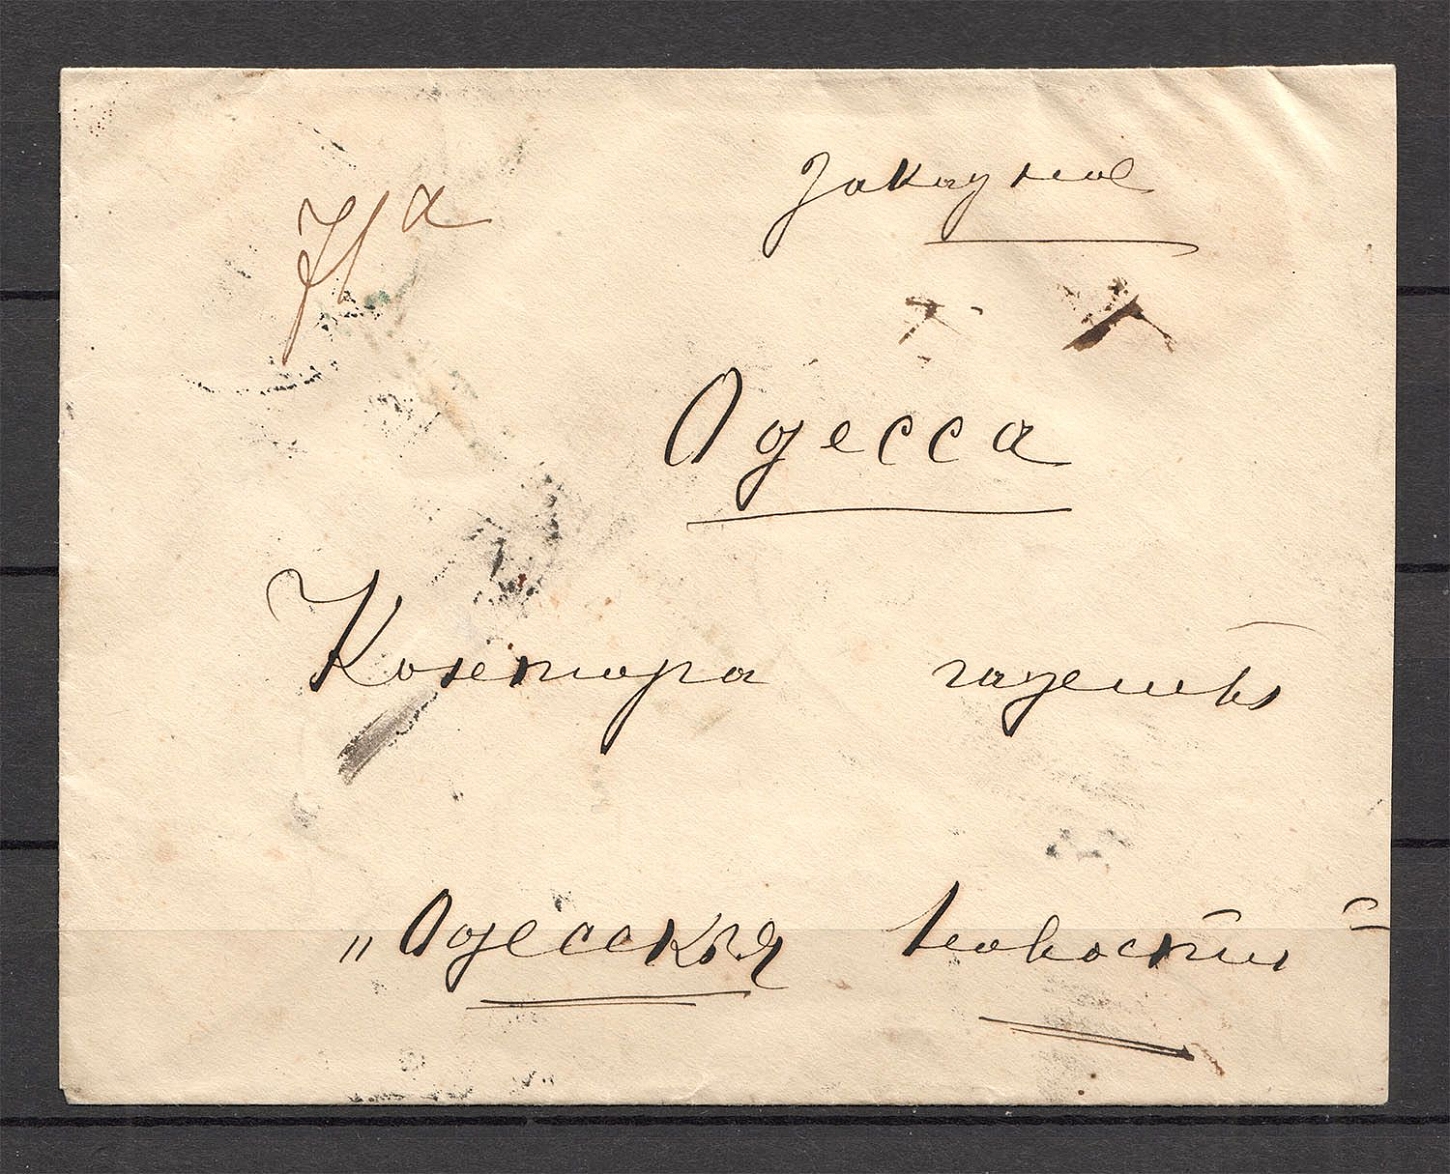 Заказное
Одесса
Контора газеты
„Одесскія Новости"